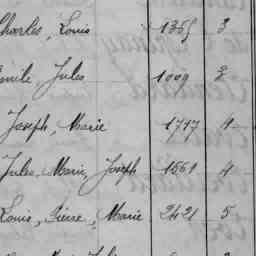 Charles, Louis 1365 3
Emile Jules 1009 2
Joseph, Marie 1717 4
Jules, Marie, Joseph 1561 4
Louis, Pierre, Marie 2421 5